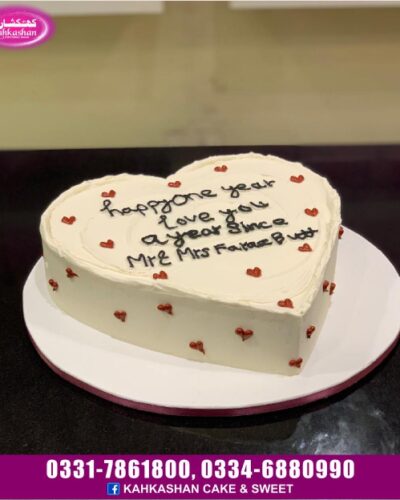 کہکشاں
Kahkashan
happy One year
Love you
a year Since
Mr & Mrs Faraz Butt
0331-7861800, 0334-6880990
KAHKASHAN CAKE & SWEET